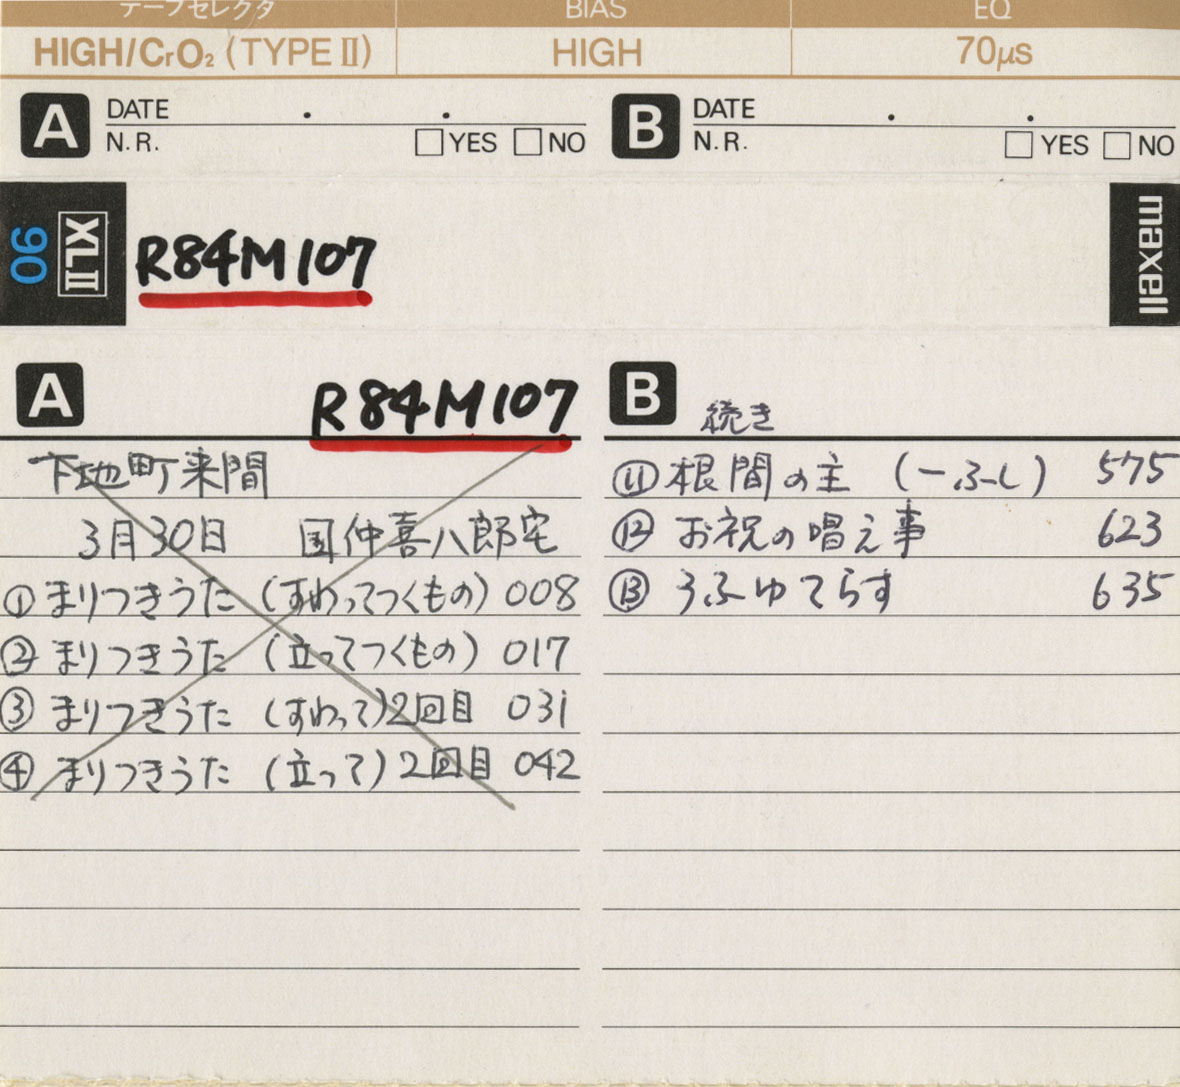 テープセレクタ BIAS EQ
HIGH/CrO₂ (TYPE II) HIGH 70μs
A DATE . . B DATE . .
N.R. □YES □NO N.R. □YES □NO
XLII 90 R84M107 maxell
A R84M107
下地町来間
3月30日 国仲喜八郎宅
① まりつきうた (すわってつくもの) 008
② まりつきうた (立ってつくもの) 017
③ まりつきうた (すわって)2回目 031
④ まりつきうた (立って)2回目 042
B 続き
⑪ 根間の主 (一ふし) 575
⑫ お祝の唱え事 623
⑬ うふゆてらす 635